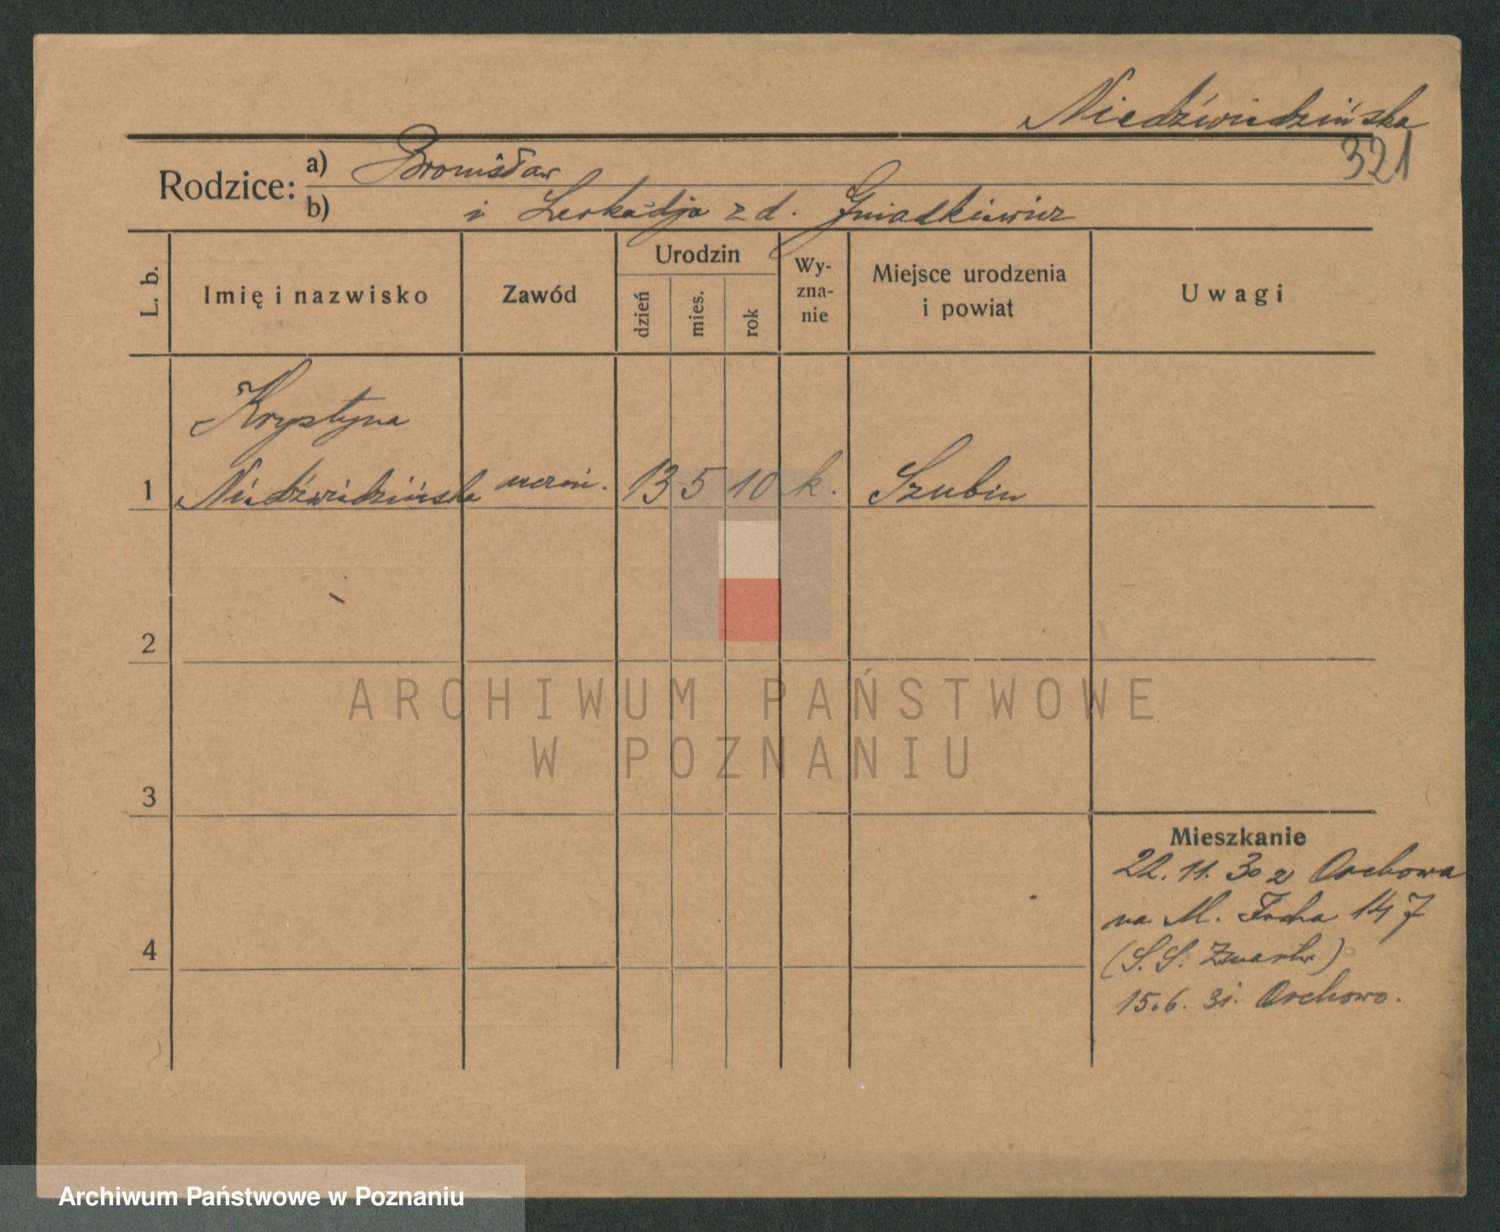 Niedźwiedzińska
321
Rodzice: a) Bronisław
b) i Leokadja z d. Gniadkiewicz
L. b.
Imię i nazwisko
Zawód
Urodzin
dzień
mies.
rok
Wy-
zna-
nie
Miejsce urodzenia
i powiat
Uwagi
Krystyna
1 Niedźwiedzińska uczni. 13 5 10 k. Szubin
2
3
4
Mieszkanie
22. 11. 30 z Orchowa
na M. Focha 147
(S.S. Zmartw.)
15. 6. 31. Orchowo.
ARCHIWUM PAŃSTWOWE
W POZNANIU
Archiwum Państwowe w Poznaniu